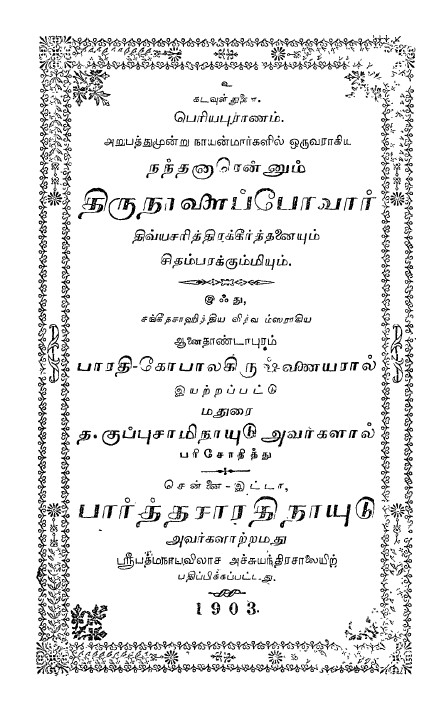 உ
கடவுள் துணை.
பெரியபுராணம்.
அறுபத்துமூன்று நாயன்மார்களில் ஒருவராகிய
நந்தனாரென்னும்
திருநாளைப்போவார்
திவ்யசரித்திரக்கீர்த்தனையும்
சிதம்பரக்கும்மியும்.
இஃது,
சங்கீதசாஹித்திய
ஆனைதாண்டாபுரம்
பாரதி-கோபாலகிருஷ்ணையரால்
இயற்றப்பட்டு
மதுரை
த. குப்புசாமிநாயுடு அவர்களால்
பரிசோதித்து
சென்னை-இட்டா,
பார்த்தசாரதிநாயுடு
அவர்களாற்றமது
ஸ்ரீபத்மநாபவிலாச அச்சுயந்திரசாலையிற்
பதிப்பிக்கப்பட்டது.
1903.